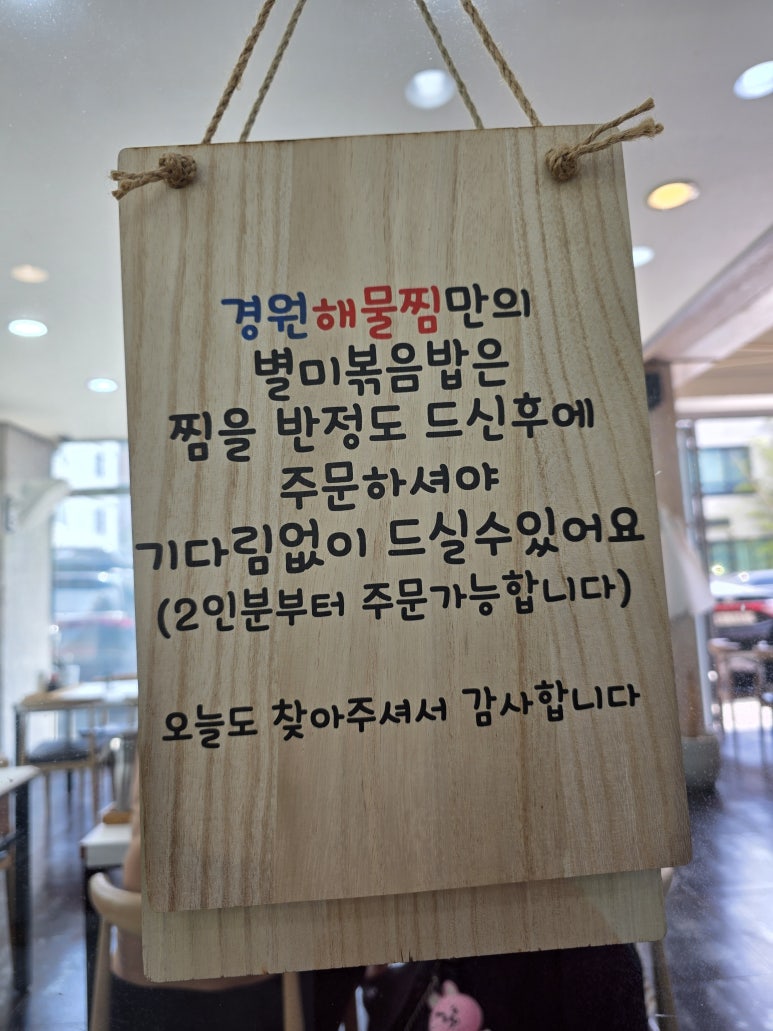 경원해물찜만의
별미볶음밥은
찜을 반정도 드신후에
주문하셔야
기다림없이 드실수있어요
(2인분부터 주문가능합니다)
오늘도 찾아주셔서 감사합니다